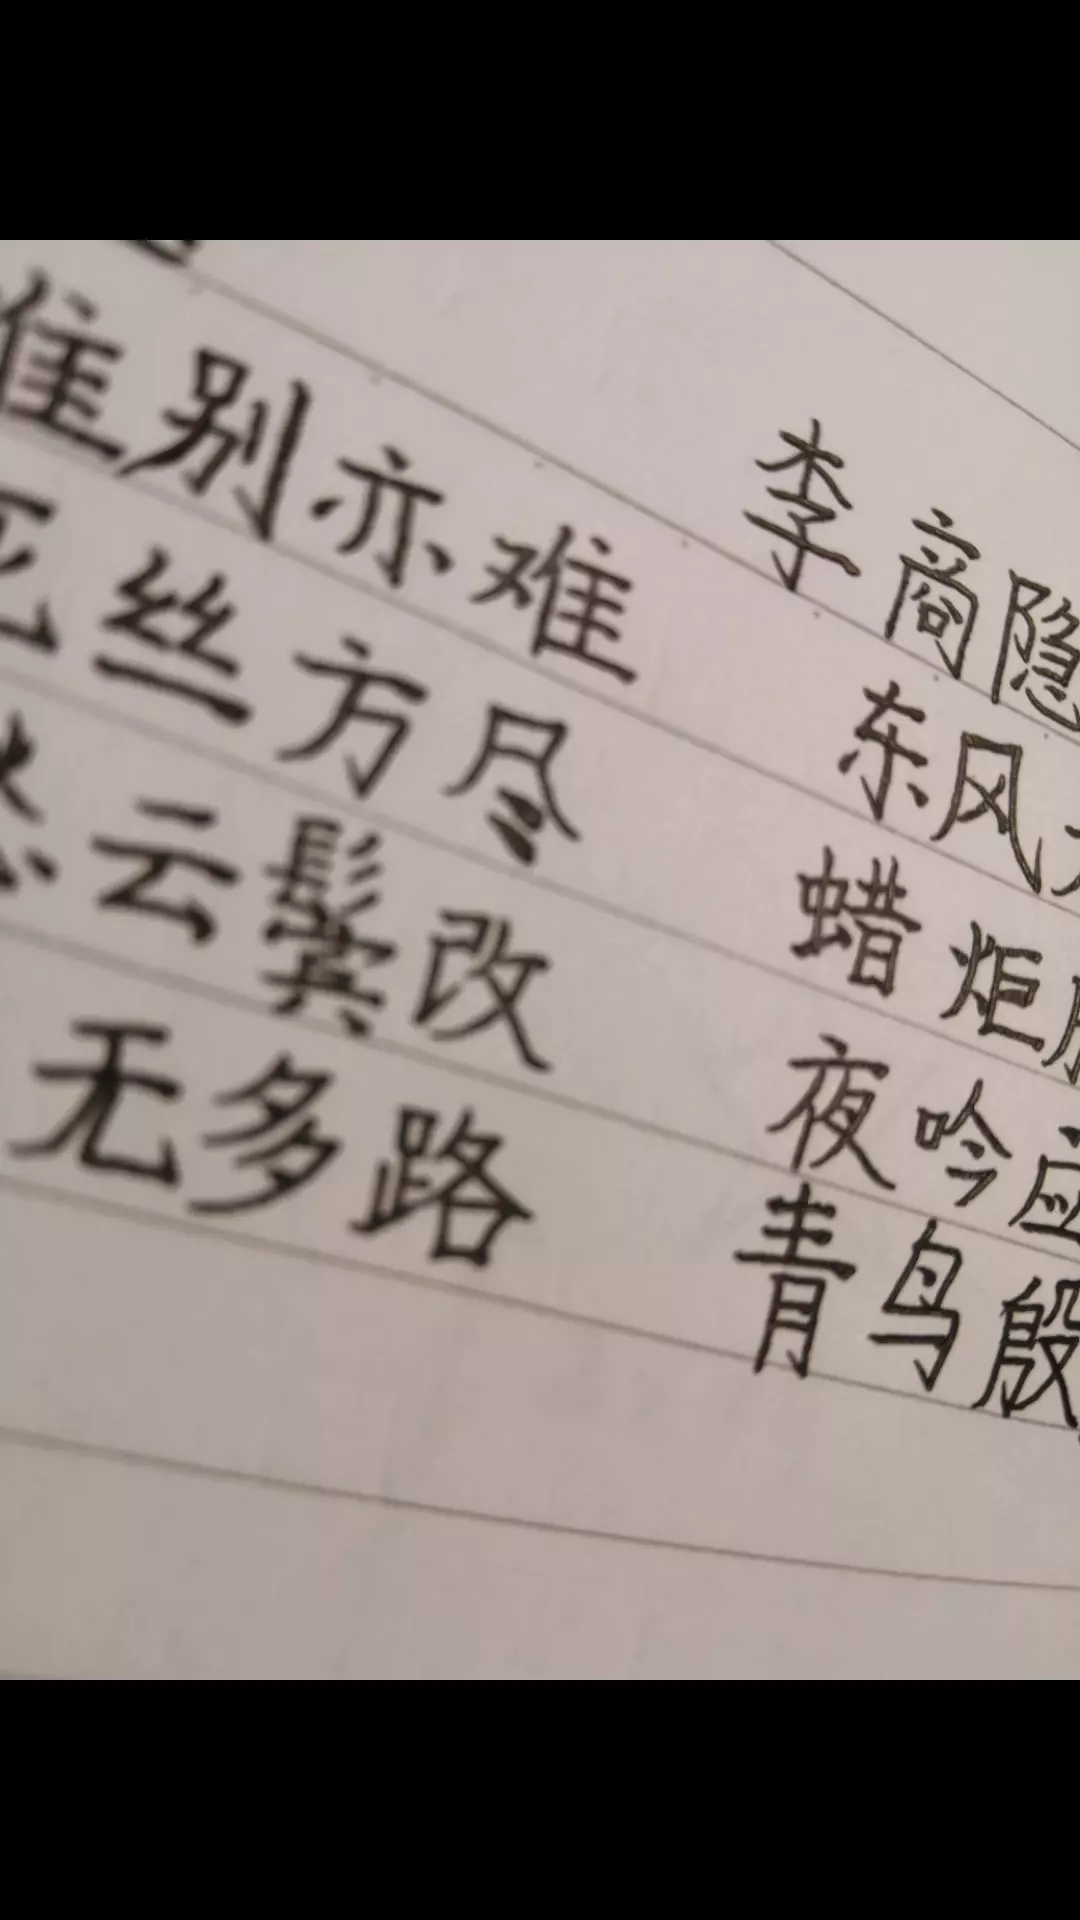 李商隐
难别亦难 东风
死丝方尽 蜡炬
愁云鬓改 夜吟应
无多路 青鸟殷